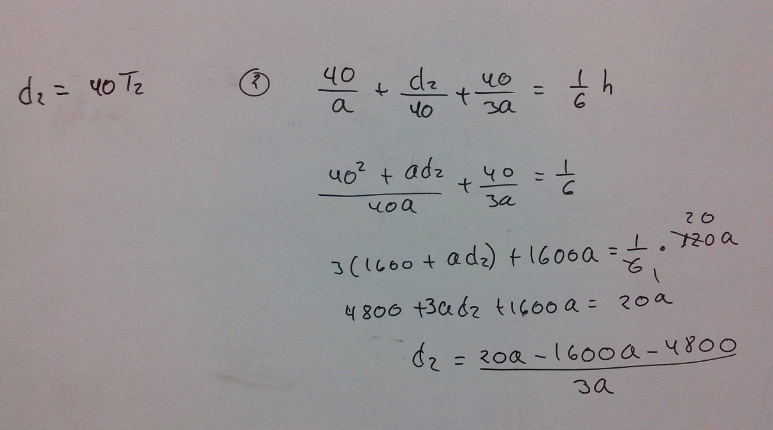 d₂ = 40T₂
② 40/a + d₂/40 + 40/3a = 1/6 h
(40² + ad₂)/40a + 40/3a = 1/6
3(1600 + ad₂) + 1600a = 1/6 · 120a 20 1
4800 + 3ad₂ + 1600a = 20a
d₂ = (20a - 1600a - 4800)/3a